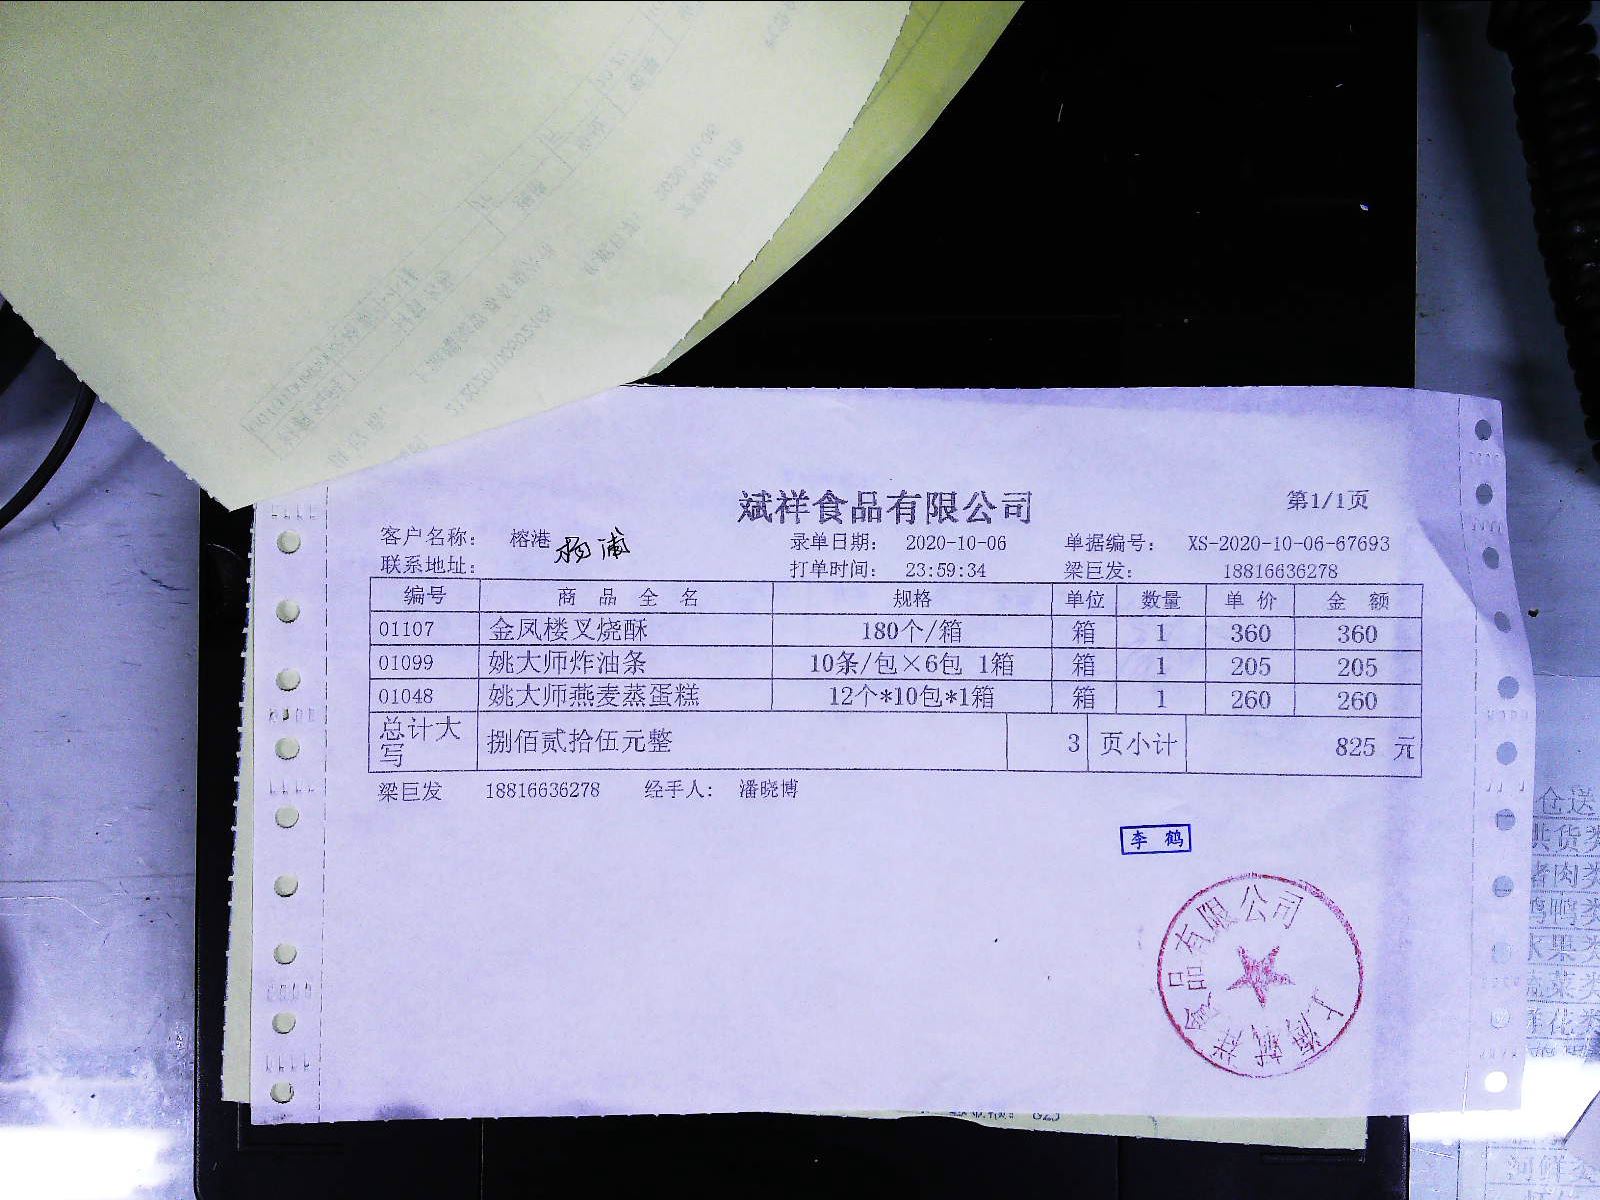 斌祥食品有限公司
第1/1页
客户名称: 榕港 杨浦 录单日期: 2020-10-06 单据编号: XS-2020-10-06-67693
联系地址: 打单时间: 23:59:34 梁巨发: 18816636278
编号 商品全名 规格 单位 数量 单价 金额
01107 金凤楼叉烧酥 180个/箱 箱 1 360 360
01099 姚大师炸油条 10条/包×6包 1箱 箱 1 205 205
01048 姚大师燕麦蒸蛋糕 12个*10包*1箱 箱 1 260 260
总计大写 捌佰贰拾伍元整 3 页小计 825 元
梁巨发 18816636278 经手人: 潘晓博
李鹤
上海斌祥食品有限公司
仓送
共货类
猪肉类
鸡鸭类
水果类
蔬菜类
鲜花类
河鲜类